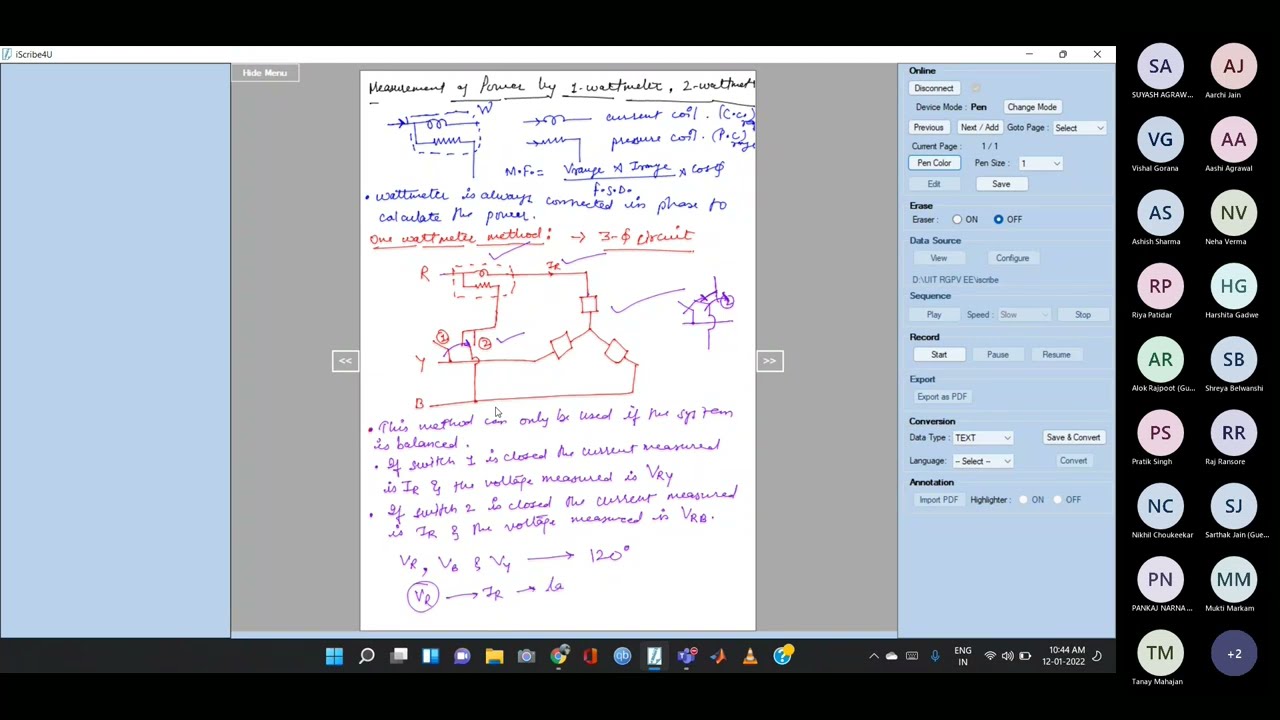 iScribe4U
Hide Menu
Measurement of Power by 1-wattmeter, 2-wattmet
W
current coil. (C.C.)
range
pressure coil. (P.C.)
range
M.F. = Vrange x Irange x cosϕ
f.s.D.
• wattmeter is always connected in phase to
calculate the power.
One wattmeter method: → 3-ϕ circuit
R
IR
1
2
2
Y
B
• This method can only be used if the system
is balanced.
• If switch 1 is closed the current measured
is IR & the voltage measured is VRY
• If switch 2 is closed the current measured
is IR & the voltage measured is VRB.
VR, VB & VY → 120°
VR → IR → la
<<
>>
Online
Disconnect
Device Mode : Pen
Change Mode
Previous
Next / Add
Goto Page :
Select
Current Page : 1 / 1
Pen Color
Pen Size :
1
Edit
Save
Erase
Eraser :
ON
OFF
Data Source
View
Configure
D:\UIT RGPV EE\iscribe
Sequence
Play
Speed :
Slow
Stop
Record
Start
Pause
Resume
Export
Export as PDF
Conversion
Data Type :
TEXT
Save & Convert
Language:
-- Select --
Convert
Annotation
Import PDF
Highlighter :
ON
OFF
SA
AJ
SUYASH AGRAW...
Aarchi Jain
VG
AA
Vishal Gorana
Aashi Agrawal
AS
NV
Ashish Sharma
Neha Verma
RP
HG
Riya Patidar
Harshita Gadwe
AR
SB
Alok Rajpoot (Gu...
Shreya Belwanshi
PS
RR
Pratik Singh
Raj Ransore
NC
SJ
Nikhil Choukeekar
Sarthak Jain (Gue...
PN
MM
PANKAJ NARNA...
Mukti Markam
TM
+2
Tanay Mahajan
qb
ENG
IN
10:44 AM
12-01-2022